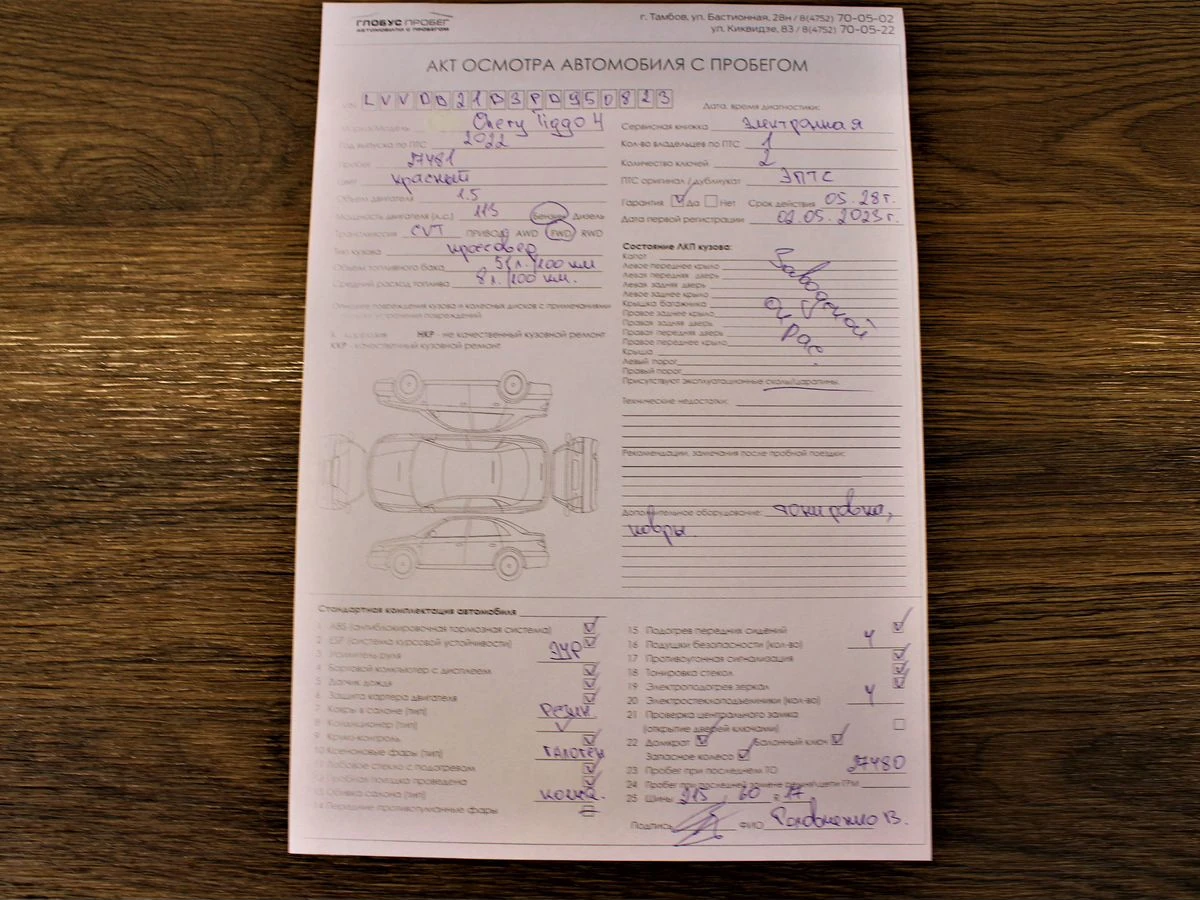 ГЛОБУС ПРОБЕГ
АВТОМОБИЛИ С ПРОБЕГОМ
г. Тамбов, ул. Бастионная, 28н / 8(4752) 70-05-02
ул. Киквидзе, 83 / 8(4752) 70-05-22
АКТ ОСМОТРА АВТОМОБИЛЯ С ПРОБЕГОМ
VIN LVVDB21B3PD950823
Марка/Модель Chery Tiggo 4
Год выпуска по ПТС 2022
Пробег 27481
Цвет красный
Объем двигателя 1.5
Мощность двигателя (л.с.) 113 Бензин Дизель
Трансмиссия CVT ПРИВОД AWD FWD RWD
Тип кузова кроссовер
Объем топливного бака 51 л. /100 км
Средний расход топлива 8 л. /100 км.
Описание повреждений кузова и колесных дисков с примечаниями
устранения повреждений
К - коррозия НКР - не качественный кузовной ремонт
ККР - качественный кузовной ремонт
Дата, время диагностики:
Сервисная книжка электронная
Кол-во владельцев по ПТС 1
Количество ключей 2
ПТС оригинал / дубликат ЭПТС
Гарантия Да Нет Срок действия 05.28г.
Дата первой регистрации 02.05.2023г.
Состояние ЛКП кузова:
Капот
Левое переднее крыло
Левая передняя дверь
Левая задняя дверь
Левое заднее крыло
Крышка багажника
Правое заднее крыло
Правая задняя дверь
Правая передняя дверь
Правое переднее крыло
Крыша
Левый порог
Правый порог
Заводской
окрас
Присутствуют эксплуатационные сколы/царапины.
Технические недостатки:
Рекомендации, замечания после пробной поездки:
Дополнительное оборудование: тонировка,
ковры.
Стандартная комплектация автомобиля
1 ABS (антиблокировочная тормозная система)
2 ESP (система курсовой устойчивости)
3 Усилитель руля ЭУР
4 Бортовой компьютер с дисплеем
5 Датчик дождя
6 Защита картера двигателя
7 Ковры в салоне (тип) Резин
8 Кондиционер (тип)
9 Круиз-контроль
10 Ксеноновые фары (тип) галоген
11 Лобовое стекло с подогревом
12 Пробная поездка проведена
13 Обивка салона (тип) кожа.
14 Передние противотуманные фары
15 Подогрев передних сидений
16 Подушки безопасности (кол-во) 4
17 Противоугонная сигнализация
18 Тонировка стекол
19 Электроподогрев зеркал
20 Электростеклоподъемники (кол-во) 4
21 Проверка центрального замка
(открытие дверей ключами)
22 Домкрат Балонный ключ
Запасное колесо
23 Пробег при последнем ТО 27480
24 Пробег при последней замене ремня/цепи ГРМ
25 Шины 215 / 60 R 17
Подпись ФИО